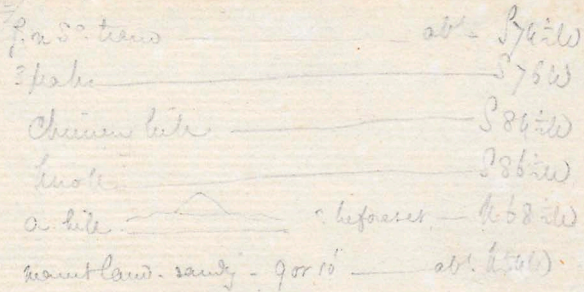 abt. S 74½ W
3 peaks S 76 W
Chimney hill S 84½ W
knole S 86½ W
a hill before set N 68½ W
main land. sandy - 9 or 10' abt. N 54 W